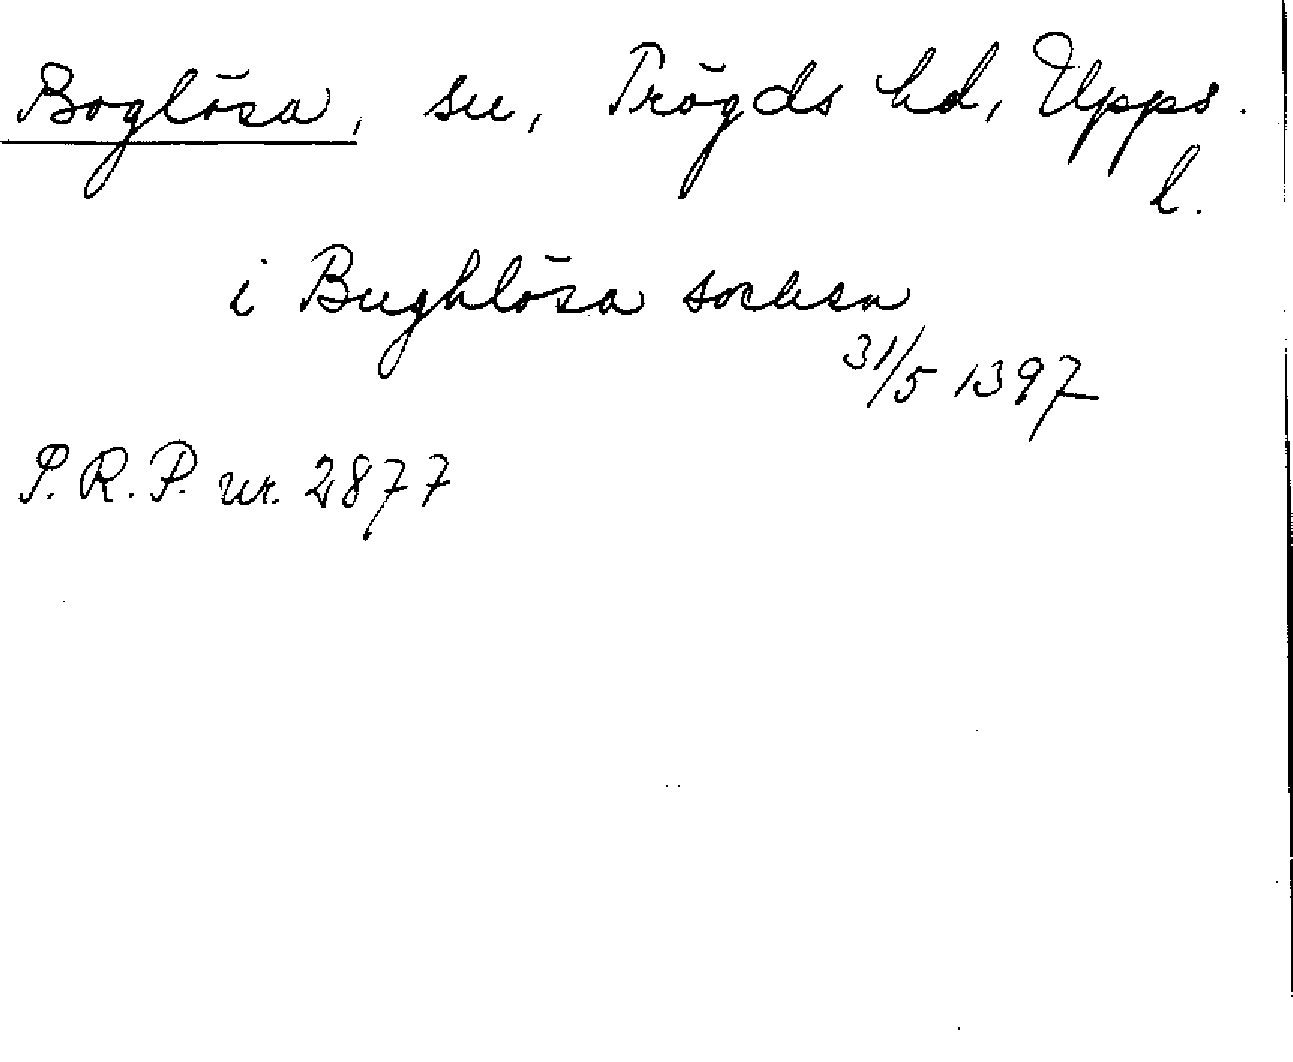 Boglösa, sn, Trögds hd, Upps.
l.
i Bughlösa sochen
31/5 1397
S.R.P. nr. 2877